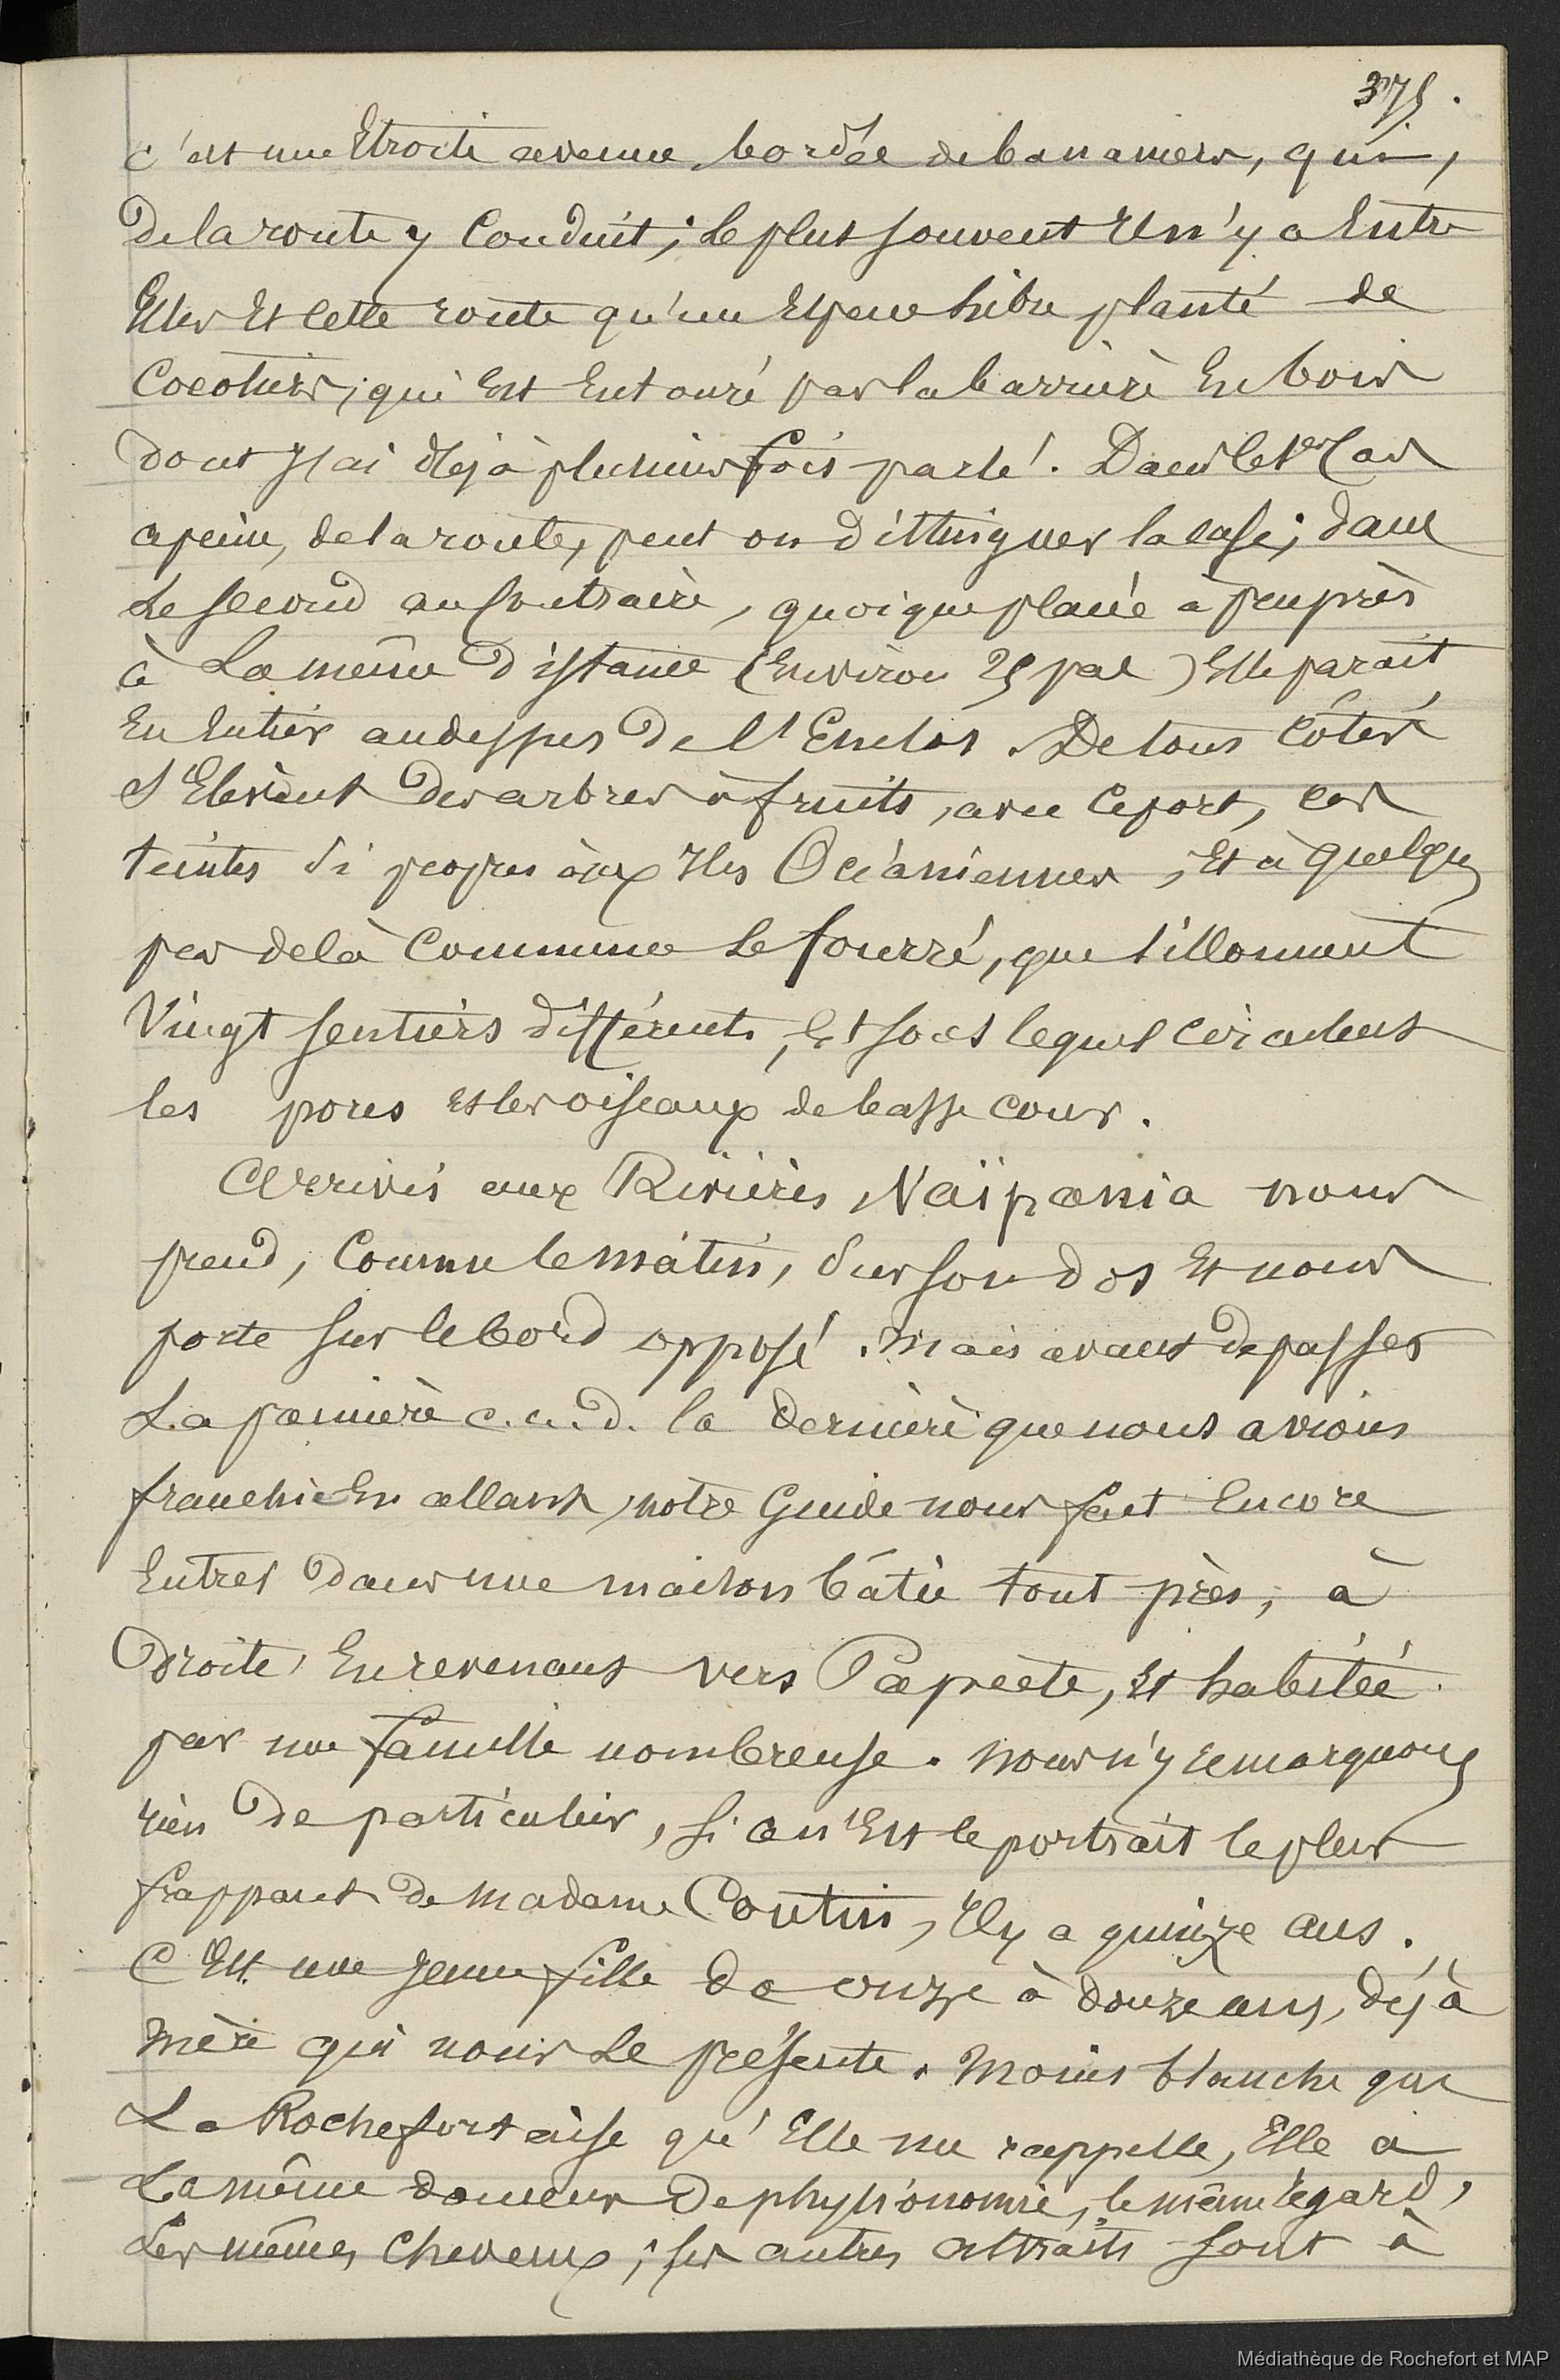 375.
c'est une Etroite avenue, bordée de bananiers, qui,
De la route y Conduit; le plus souvent Il n'y a Entre
Elles Et cette route qu'un Espace libre planté de
Cocotiers, qui Est Entouré par la barrière En bois
dont j'ai déjà plusieurs fois parlé. Dans le 1er Cas
a peine, de la route, peut on distinguer la case; dans
Le second au Contraire, quoique placée à peu près
à La même Distance (Environ 25 pas) Elle parait
En Entier au dessus De l'Enclos. De tous Côtés
S'Elèvent Des arbres à fruits, avec ce port, ces
teintes si propres aux Iles Océaniennes, Et à quelques
pas de là Commence Le fourré, que sillonnent
Vingt sentiers différents, Et sous lequel circulent
les porcs Et les oiseaux de basse cour.
Arrivés aux Rivières Naïpania nous
prend, Comme le matin, Sur son dos Et nous
porte Sur le bord opposé. Mais avant de passer
La première c. a. d. la dernière que nous avions
franchie En allant, notre Guide nous fait Encore
Entrer Dans une maison bâtie tout près, à
Droite, En revenant vers Papeete, Et habitée
par une famille nombreuse. Nous n'y remarquons
rien De particulier, si ce n'Est le portrait le plus
frappant de Madame Coutin, Il y a quinze ans.
C'Est une jeune fille de onze à douze ans, déjà
Mère qui nous Le présente. Moins blanche que
La Rochefortaise qu'Elle me rappelle, Elle a
La même douceur De physionomie, le même regard,
Les mêmes Cheveux; ses autres attraits sont à
Médiathèque de Rochefort et MAP